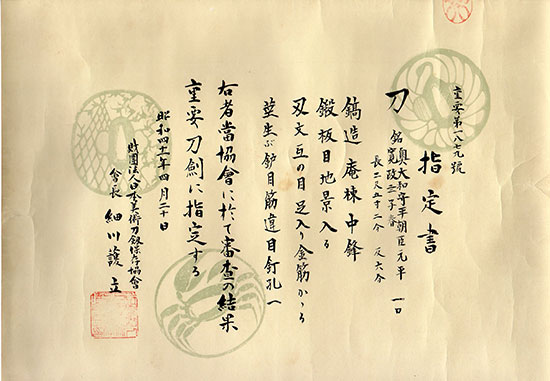 重要第一八七九號
指定書
刀 銘 奥大和守平朝臣元平 一口
寛政二子春
長二尺五寸二分 反六分
鎬造 庵棟 中鋒
鍛 板目 地景入る
刃文 互の目 足入り 金筋かゝる
茎 生ぶ 鑪目筋違 目釘孔一
右者當協會に於て審査の結果
重要刀劍に指定する
昭和四十一年四月二十日
財團法人日本美術刀劍保存協會
會長 細川護立